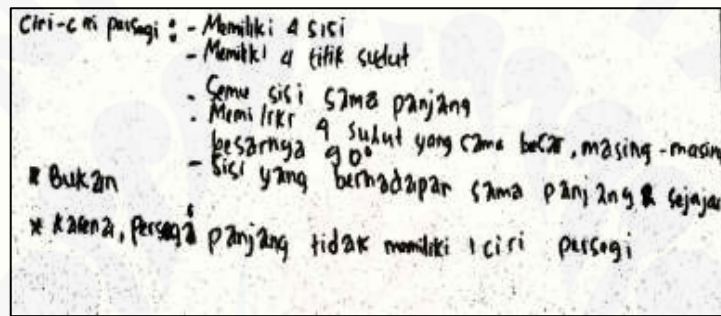 Ciri-ciri persegi : - Memiliki 4 sisi
- Memiliki 4 titik sudut
- Semua sisi sama panjang
- Memiliki 4 sudut yang sama besar, masing-masing
besarnya 90°
- Sisi yang berhadapan sama panjang & sejajar
* Bukan
* Karena, persegi panjang tidak memiliki 1 ciri persegi